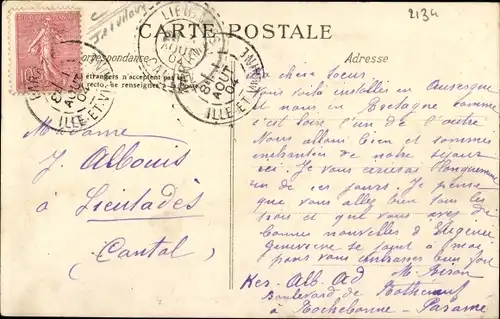 2134
CARTE POSTALE
Correspondance
Adresse
étrangers n'acceptent pas
recto, se renseigner à
AOUT
04
ILLE-ET-VILAINE
AOUT
04
ILLE-ET-VILAINE
Ma chère Soeur
Vous voilà installés en Auvergne
et nous en Bretagne comme
c'est loin l'un de l'autre
Nous allons bien et sommes
enchantés de notre séjour
ici. Je vous écrirai longuement
un de ces jours. Je pense
que vous allez bien tous les
trois et que vous avez de
bonnes nouvelles d'Eugénie
Geneviève se joint à moi
pour vous embrasser bien fort
M.
Boulevard de Rothéneuf
à Rochebonne - Paramé
Madame
J. Albouis
à Lieutadès
(Cantal)